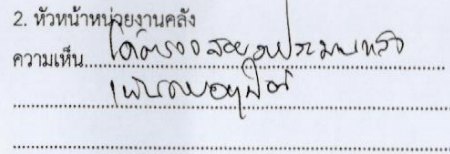 2. หัวหน้าหน่วยงานคลัง
ความเห็น ได้ตรวจสอบงบประมาณแล้ว
เห็นควรอนุมัติ